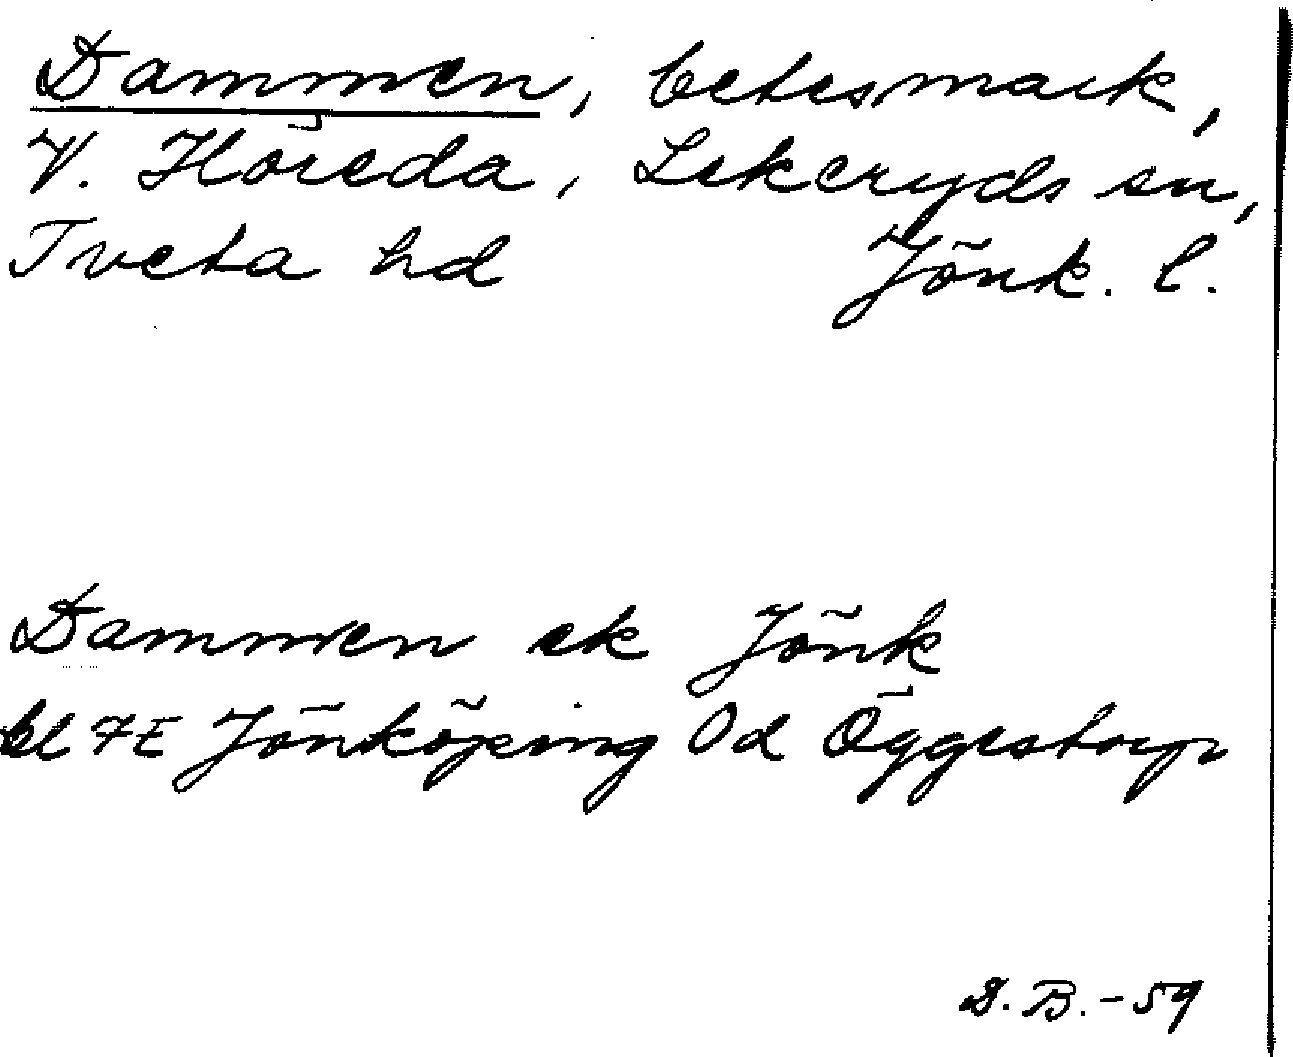 Dammen, betesmark,
V. Höreda, Lekeryds sn,
Tveta hd Jönk. l.
Dammen ek Jönk
bl 7E Jönköping Od Öggestorp
D. B. - 59